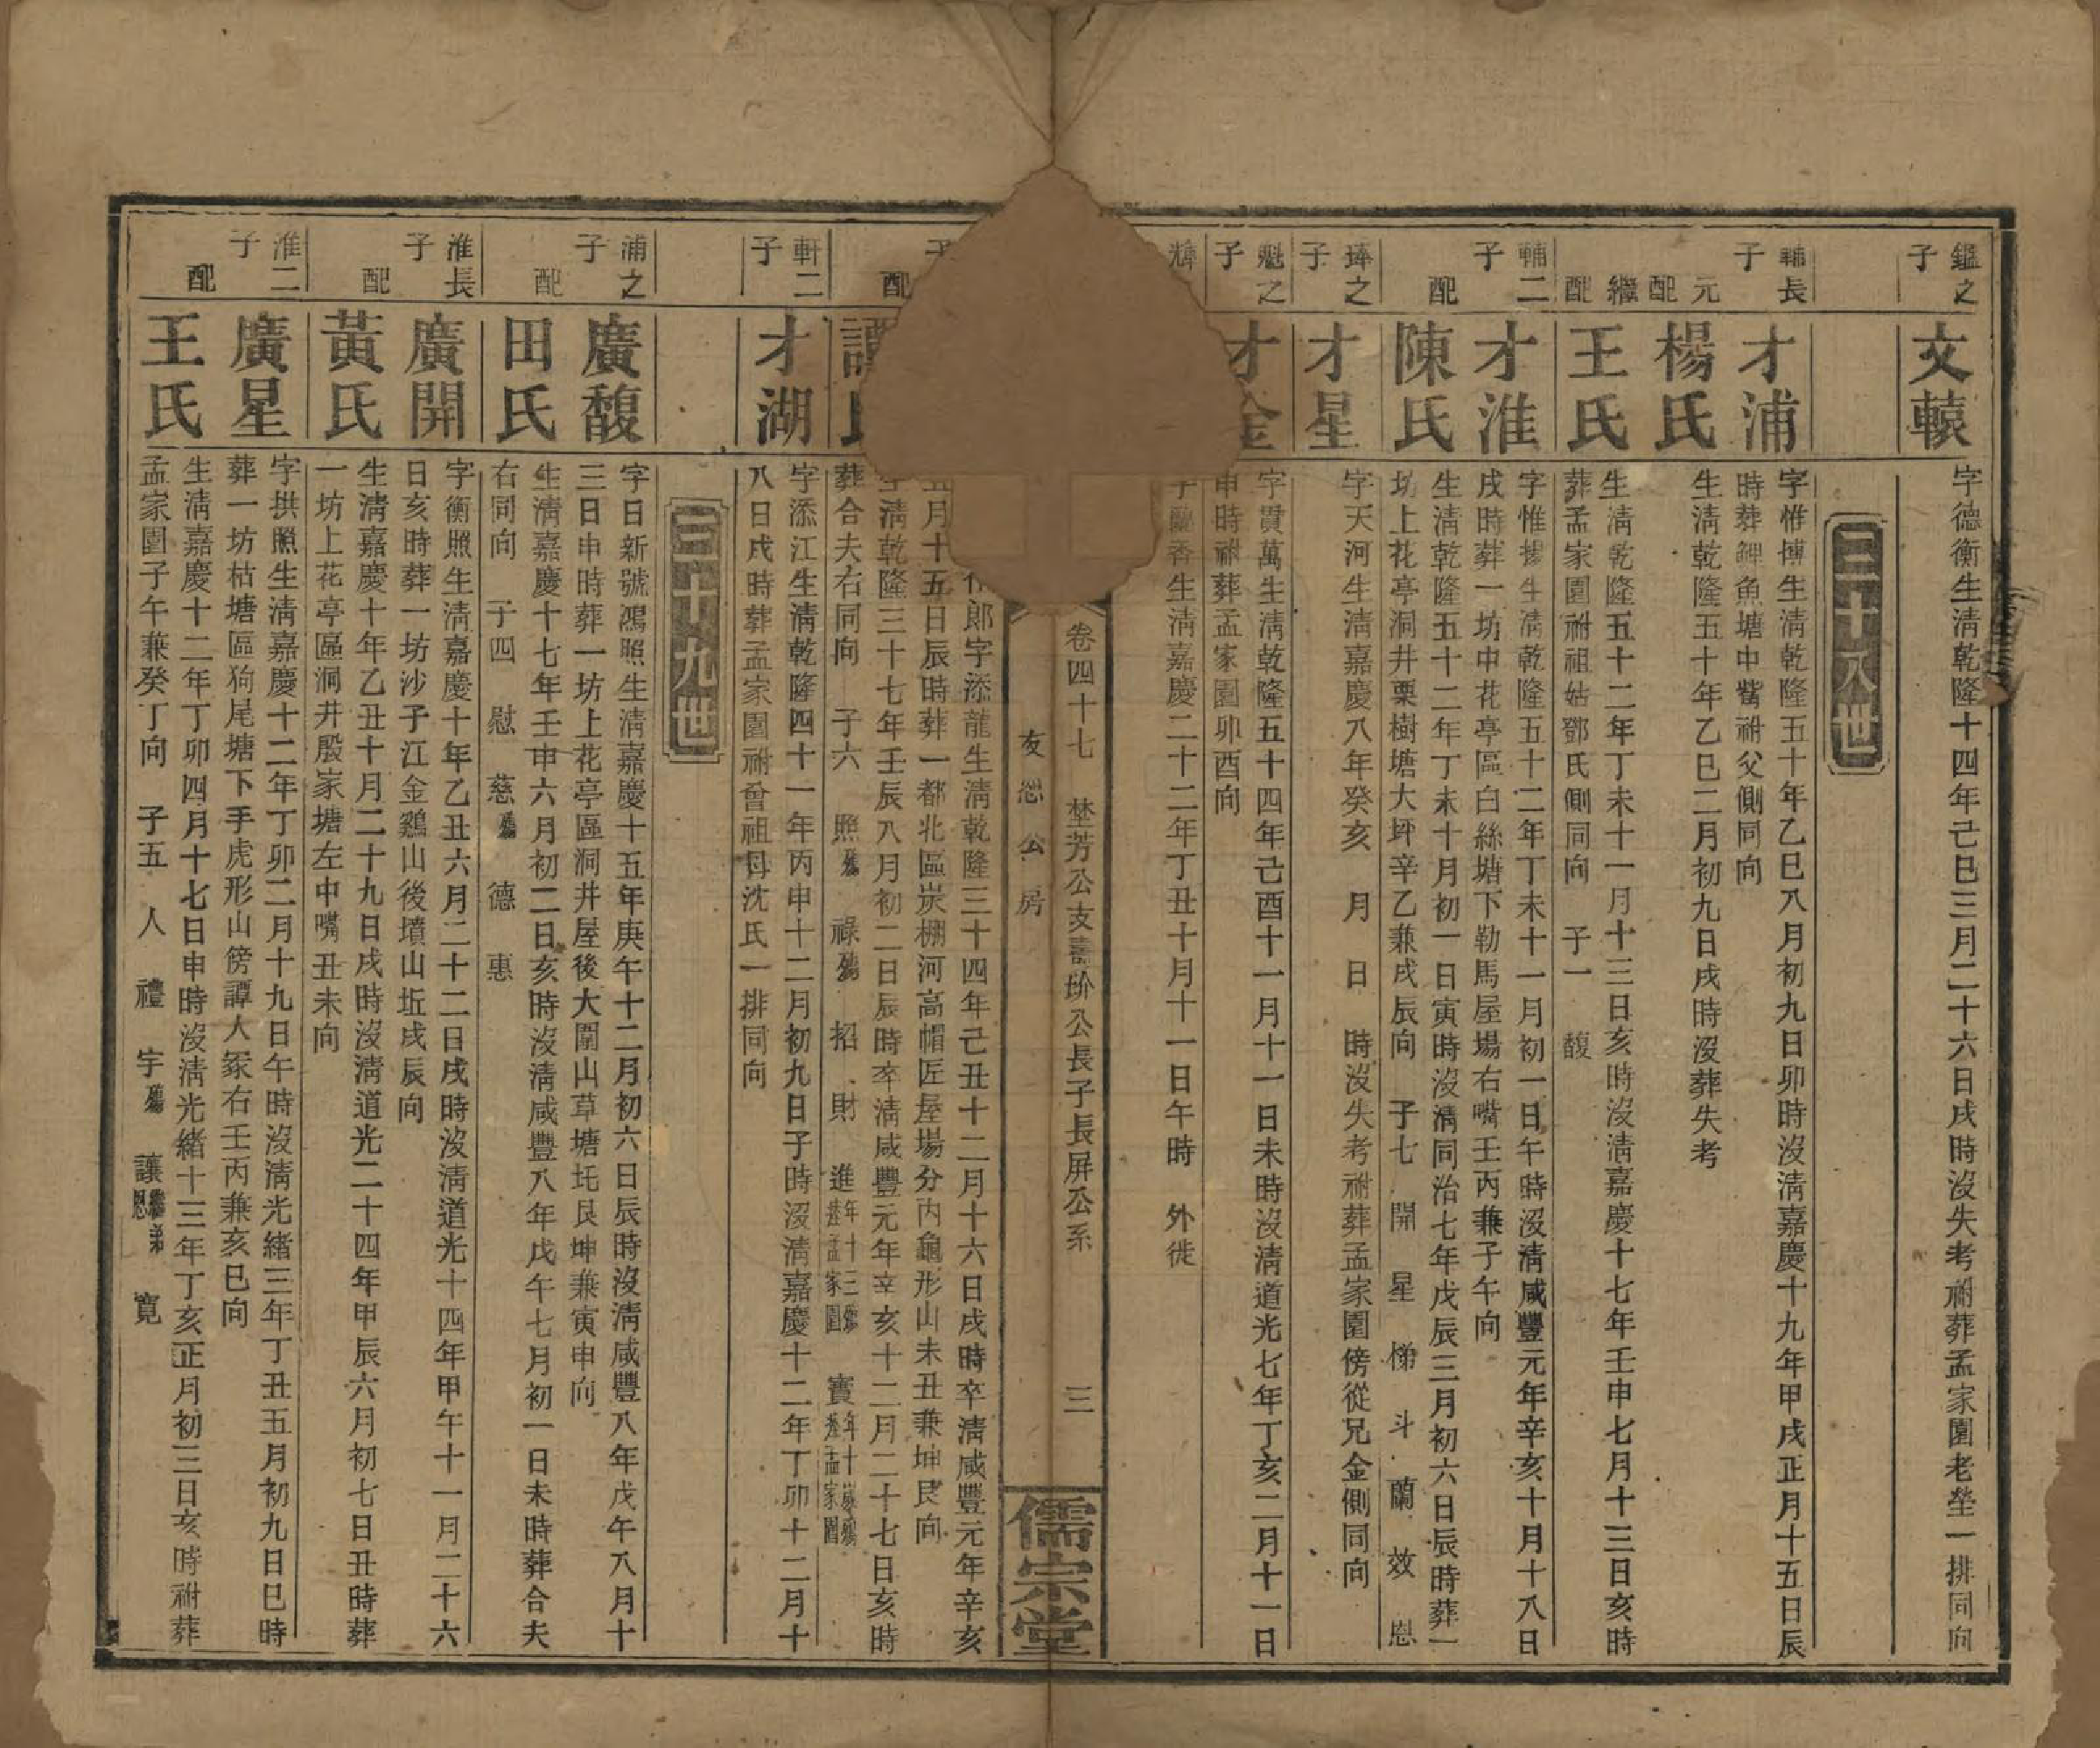 鑑之子
文轅
字德衡生淸乾隆十四年己巳三月二十六日戌時沒失考祔葬孟家園老塋一排同向
三十八世
輔長子
才浦
字惟博生淸乾隆五十年乙巳八月初九日卯時沒淸嘉慶十九年甲戌正月十五日辰
時葬鯉魚塘中嘴祔父側同向
元配
楊氏
生淸乾隆五十年乙巳二月初九日戌時沒葬失考
繼配
王氏
生淸乾隆五十二年丁未十一月十三日亥時沒淸嘉慶十七年壬申七月十三日亥時
葬孟家園祔祖姑鄧氏側同向 子一 馥
輔二子
才淮
字惟揚生淸乾隆五十二年丁未十一月初一日午時沒淸咸豐元年辛亥十月十八日
戌時葬一坊中花亭區白絲塘下勒馬屋場右嘴壬丙兼子午向
配
陳氏
生淸乾隆五十二年丁未十月初一日寅時沒淸同治七年戊辰三月初六日辰時葬一
坊上花亭洞井栗樹塘大坪辛乙兼戌辰向 子七 開 星 悌 斗 蘭 效 恩
琫之子
才星
字天河生淸嘉慶八年癸亥 月 日 時沒失考祔葬孟家園傍從兄金側同向
魁之子
才金
字貫萬生淸乾隆五十四年己酉十一月十一日未時沒淸道光七年丁亥二月十一日
申時祔葬孟家園卯酉向
香生淸嘉慶二十二年丁丑十月十一日午時 外徙
卷四十七 埜芳公支壽玠公長子長屏公系 三
友恕公房
儒宗堂
郎字添龍生淸乾隆三十四年己丑十二月十六日戌時卒淸咸豐元年辛亥
五月十五日辰時葬一都北區炭棚河高帽匠屋場分內龜形山未丑兼坤艮向
配
譚氏
生淸乾隆三十七年壬辰八月初二日辰時卒淸咸豐元年辛亥十二月二十七日亥時
葬合夫右同向 子六 照殤 祿殤 招 財 進年十三殤葬孟家園 寶年十歲殤葬孟家園
軒二子
才湖
字添江生淸乾隆四十一年丙申十二月初九日子時沒淸嘉慶十二年丁卯十二月十
八日戌時葬孟家園祔曾祖母沈氏一排同向
三十九世
浦之子
廣馥
字日新號鴻照生淸嘉慶十五年庚午十二月初六日辰時沒淸咸豐八年戊午八月十
三日申時葬一坊上花亭區洞井屋後大圍山草塘圫艮坤兼寅申向
配
田氏
生淸嘉慶十七年壬申六月初二日亥時沒淸咸豐八年戊午七月初一日未時葬合夫
右同向 子四 慰 慈殤 德 惠
淮長子
廣開
字衡照生淸嘉慶十年乙丑六月二十二日戌時沒淸道光十四年甲午十一月二十六
日亥時葬一坊沙子江金鷄山後墳山坵戌辰向
配
黃氏
生淸嘉慶十年乙丑十月二十九日戌時沒淸道光二十四年甲辰六月初七日丑時葬
一坊上花亭區洞井殷家塘左中嘴丑未向
淮二子
廣星
字拱照生淸嘉慶十二年丁卯二月十九日午時沒淸光緖三年丁丑五月初九日巳時
葬一坊枯塘區狗尾塘下手虎形山傍譚人冢右壬丙兼亥巳向
配
王氏
生淸嘉慶十二年丁卯四月十七日申時沒淸光緖十三年丁亥正月初三日亥時祔葬
孟家園子午兼癸丁向 子五 人 禮 宇殤 讓繼弟恩 寬